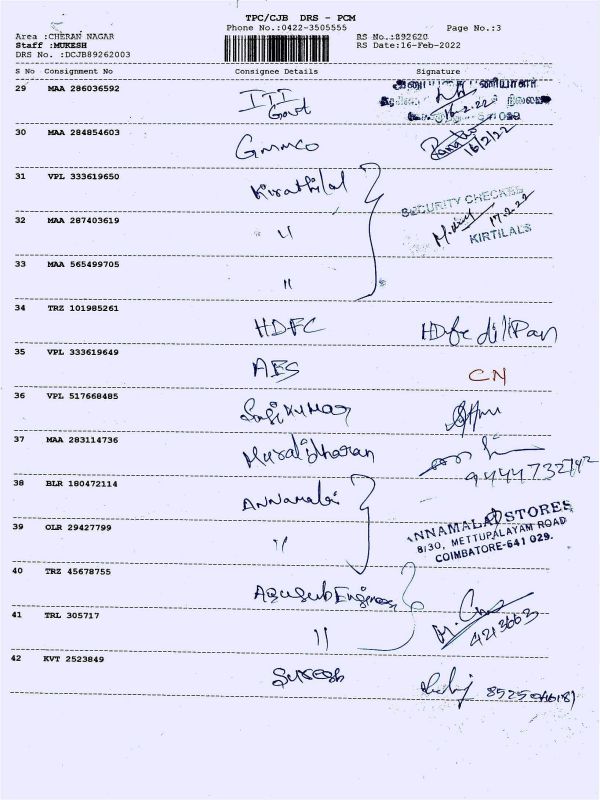 TPC/CJB DRS - PCM
Phone No.:0422-3505555 Page No.:3
Area :CHERAN NAGAR RS No.:892620
Staff :MUKESH RS Date:16-Feb-2022
DRS No. :DCJB89262003
S No Consignment No Consignee Details Signature
29 MAA 286036592 ITI Govt
16-2-22
30 MAA 284854603 Gmmco
16/2/22
31 VPL 333619650 Kirathilal
SECURITY CHECKED
17.2.22
KIRTILALS
32 MAA 287403619 "
33 MAA 565499705 "
34 TRZ 101985261 HDFC HDfc dilipan
35 VPL 333619649 AES CN
36 VPL 517668485 Sasikumar
37 MAA 283114736 Muralidharan
38 BLR 180472114 Annamalai
39 OLR 29427799 "
ANNAMALAI STORES
8/30, METTUPALAYAM ROAD
COIMBATORE-641 029.
40 TRZ 45678755
41 TRL 305717 "
4213663
42 KVT 2523849 Suresh